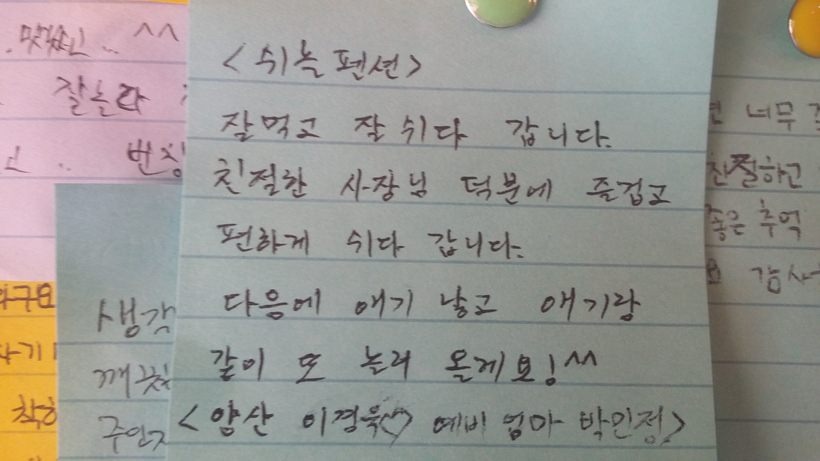 <쉬놀 펜션>
잘먹고 잘 쉬다 갑니다.
친절한 사장님 덕분에 즐겁고
편하게 쉬다 갑니다.
다음에 애기 낳고 애기랑
같이 또 놀러 올게요!^^
<양산 이경욱♡ 예비 엄마 박민정>
^^
잘놀다
생각
깨끗
너무
친절하고
좋은 추억
감사